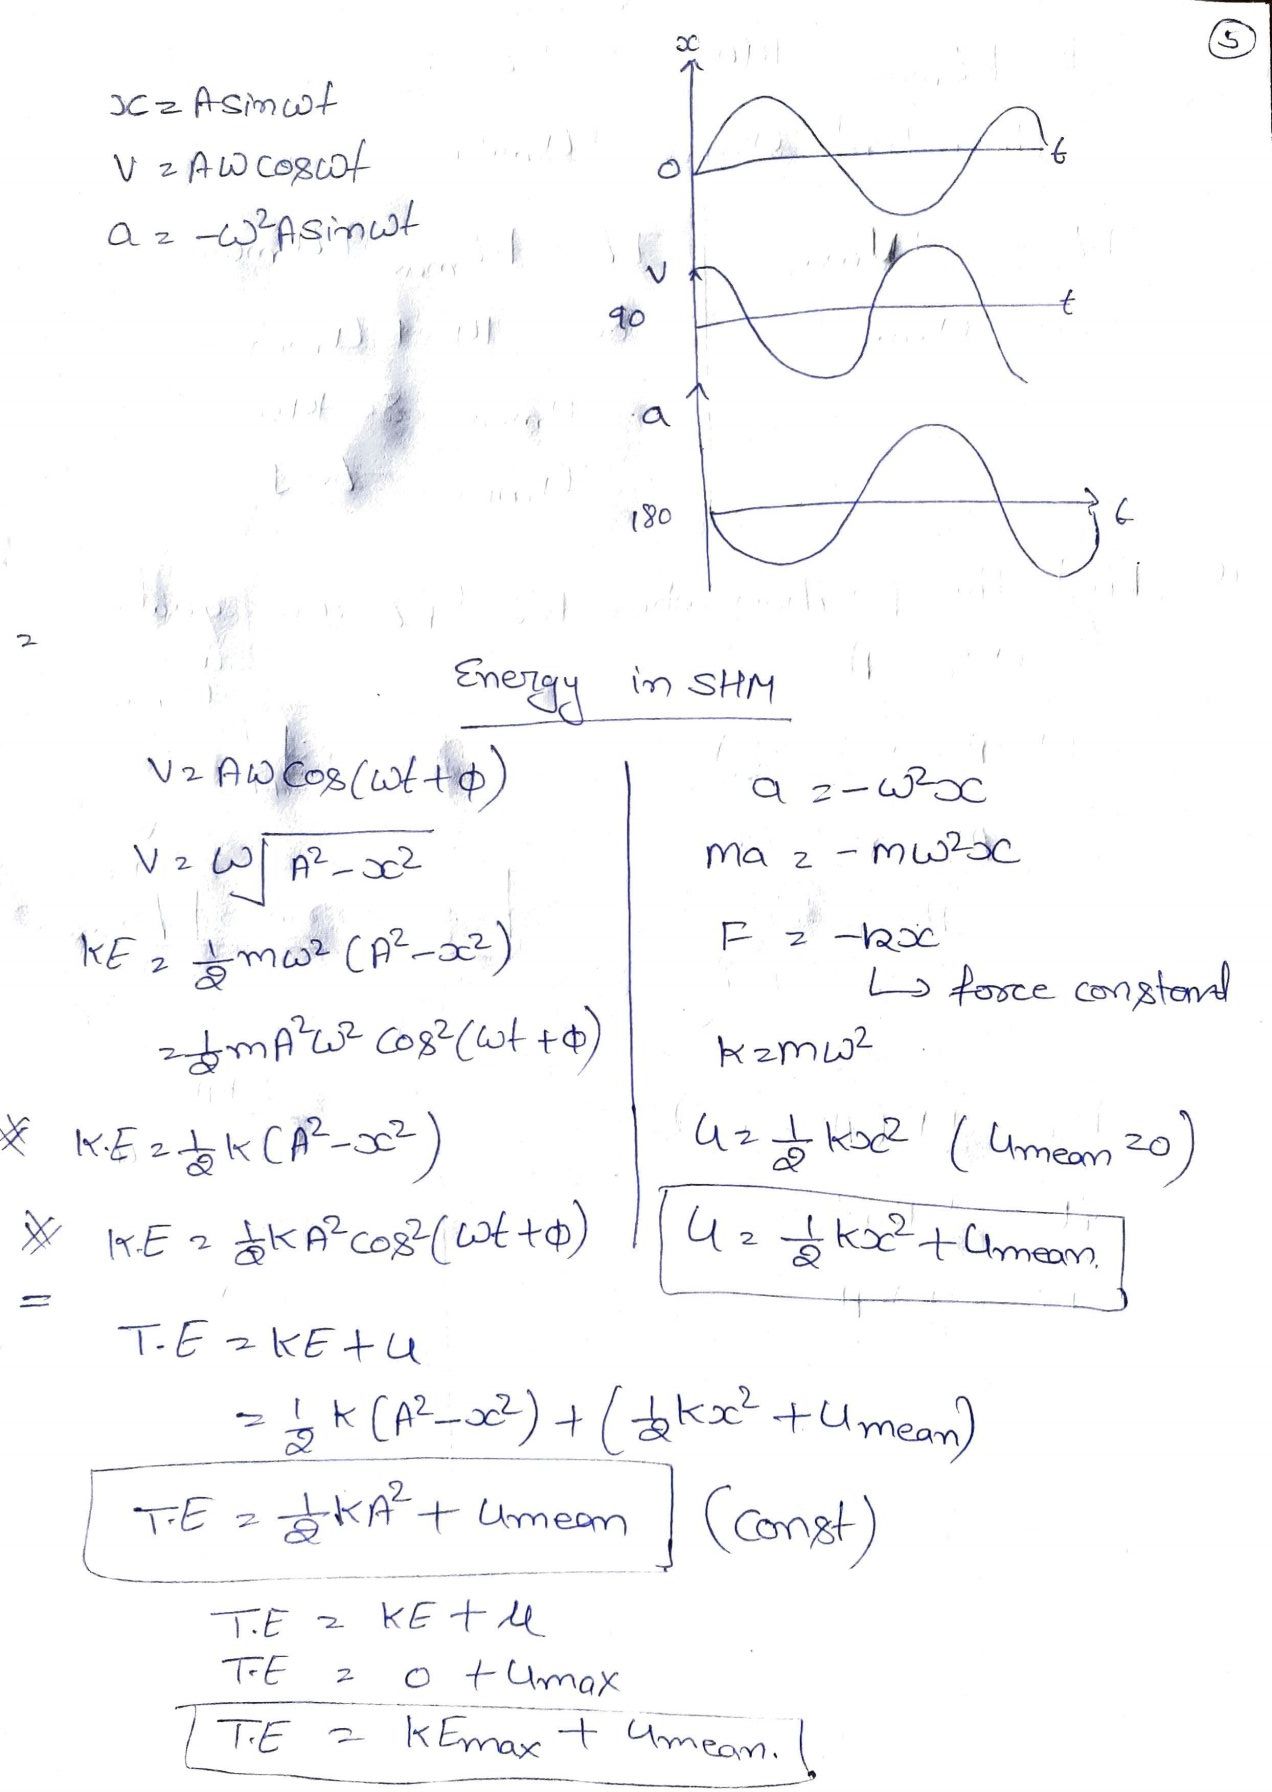 5
x = A sin ωt
V = Aω cos ωt
a = -ω²A sin ωt
x
0
t
V
90
t
a
180
t
Energy in SHM
V = Aω cos(ωt + φ)
V = ω√A² - x²
KE = 1/2 mω² (A² - x²)
= 1/2 mA²ω² cos²(ωt + φ)
K.E = 1/2 K(A² - x²)
K.E = 1/2 KA² cos²(ωt + φ)
a = -ω²x
ma = -mω²x
F = -kx
↳ force constant
K = mω²
U = 1/2 Kx² (Umean = 0)
U = 1/2 Kx² + Umean.
T.E = KE + U
= 1/2 K(A² - x²) + (1/2 Kx² + Umean)
T.E = 1/2 KA² + Umean (const)
T.E = KE + U
T.E = 0 + Umax
T.E = KEmax + Umean.